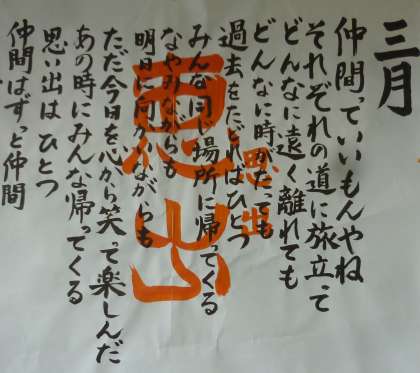 三月
仲間っていいもんやね
それぞれの道に旅立って
どんなに遠く離れても
どんなに時がたっても
過去をたどればひとつ
みんな同じ場所に帰ってくる
なやみながらも
明日に向かいながらも
ただ今日を心から笑って楽しんだ
あの時にみんな帰ってくる
思い出は ひとつ
仲間はずっと仲間
思出
思出